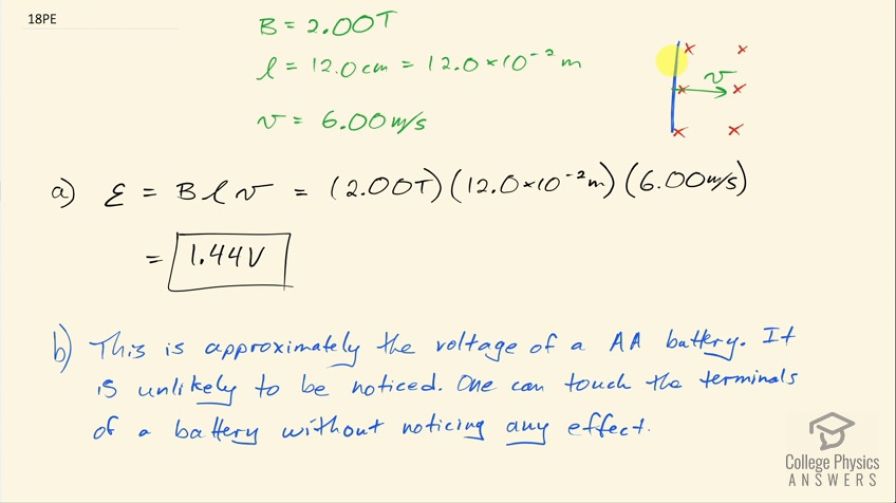 18PE
B = 2.00T
l = 12.0cm = 12.0×10⁻²m
v = 6.00m/s
× ×
v
× ×
× ×
a) ε = Blv = (2.00T)(12.0×10⁻²m)(6.00m/s)
= 1.44V
b) This is approximately the voltage of a AA battery. It
is unlikely to be noticed. One can touch the terminals
of a battery without noticing any effect.
College Physics
ANSWERS